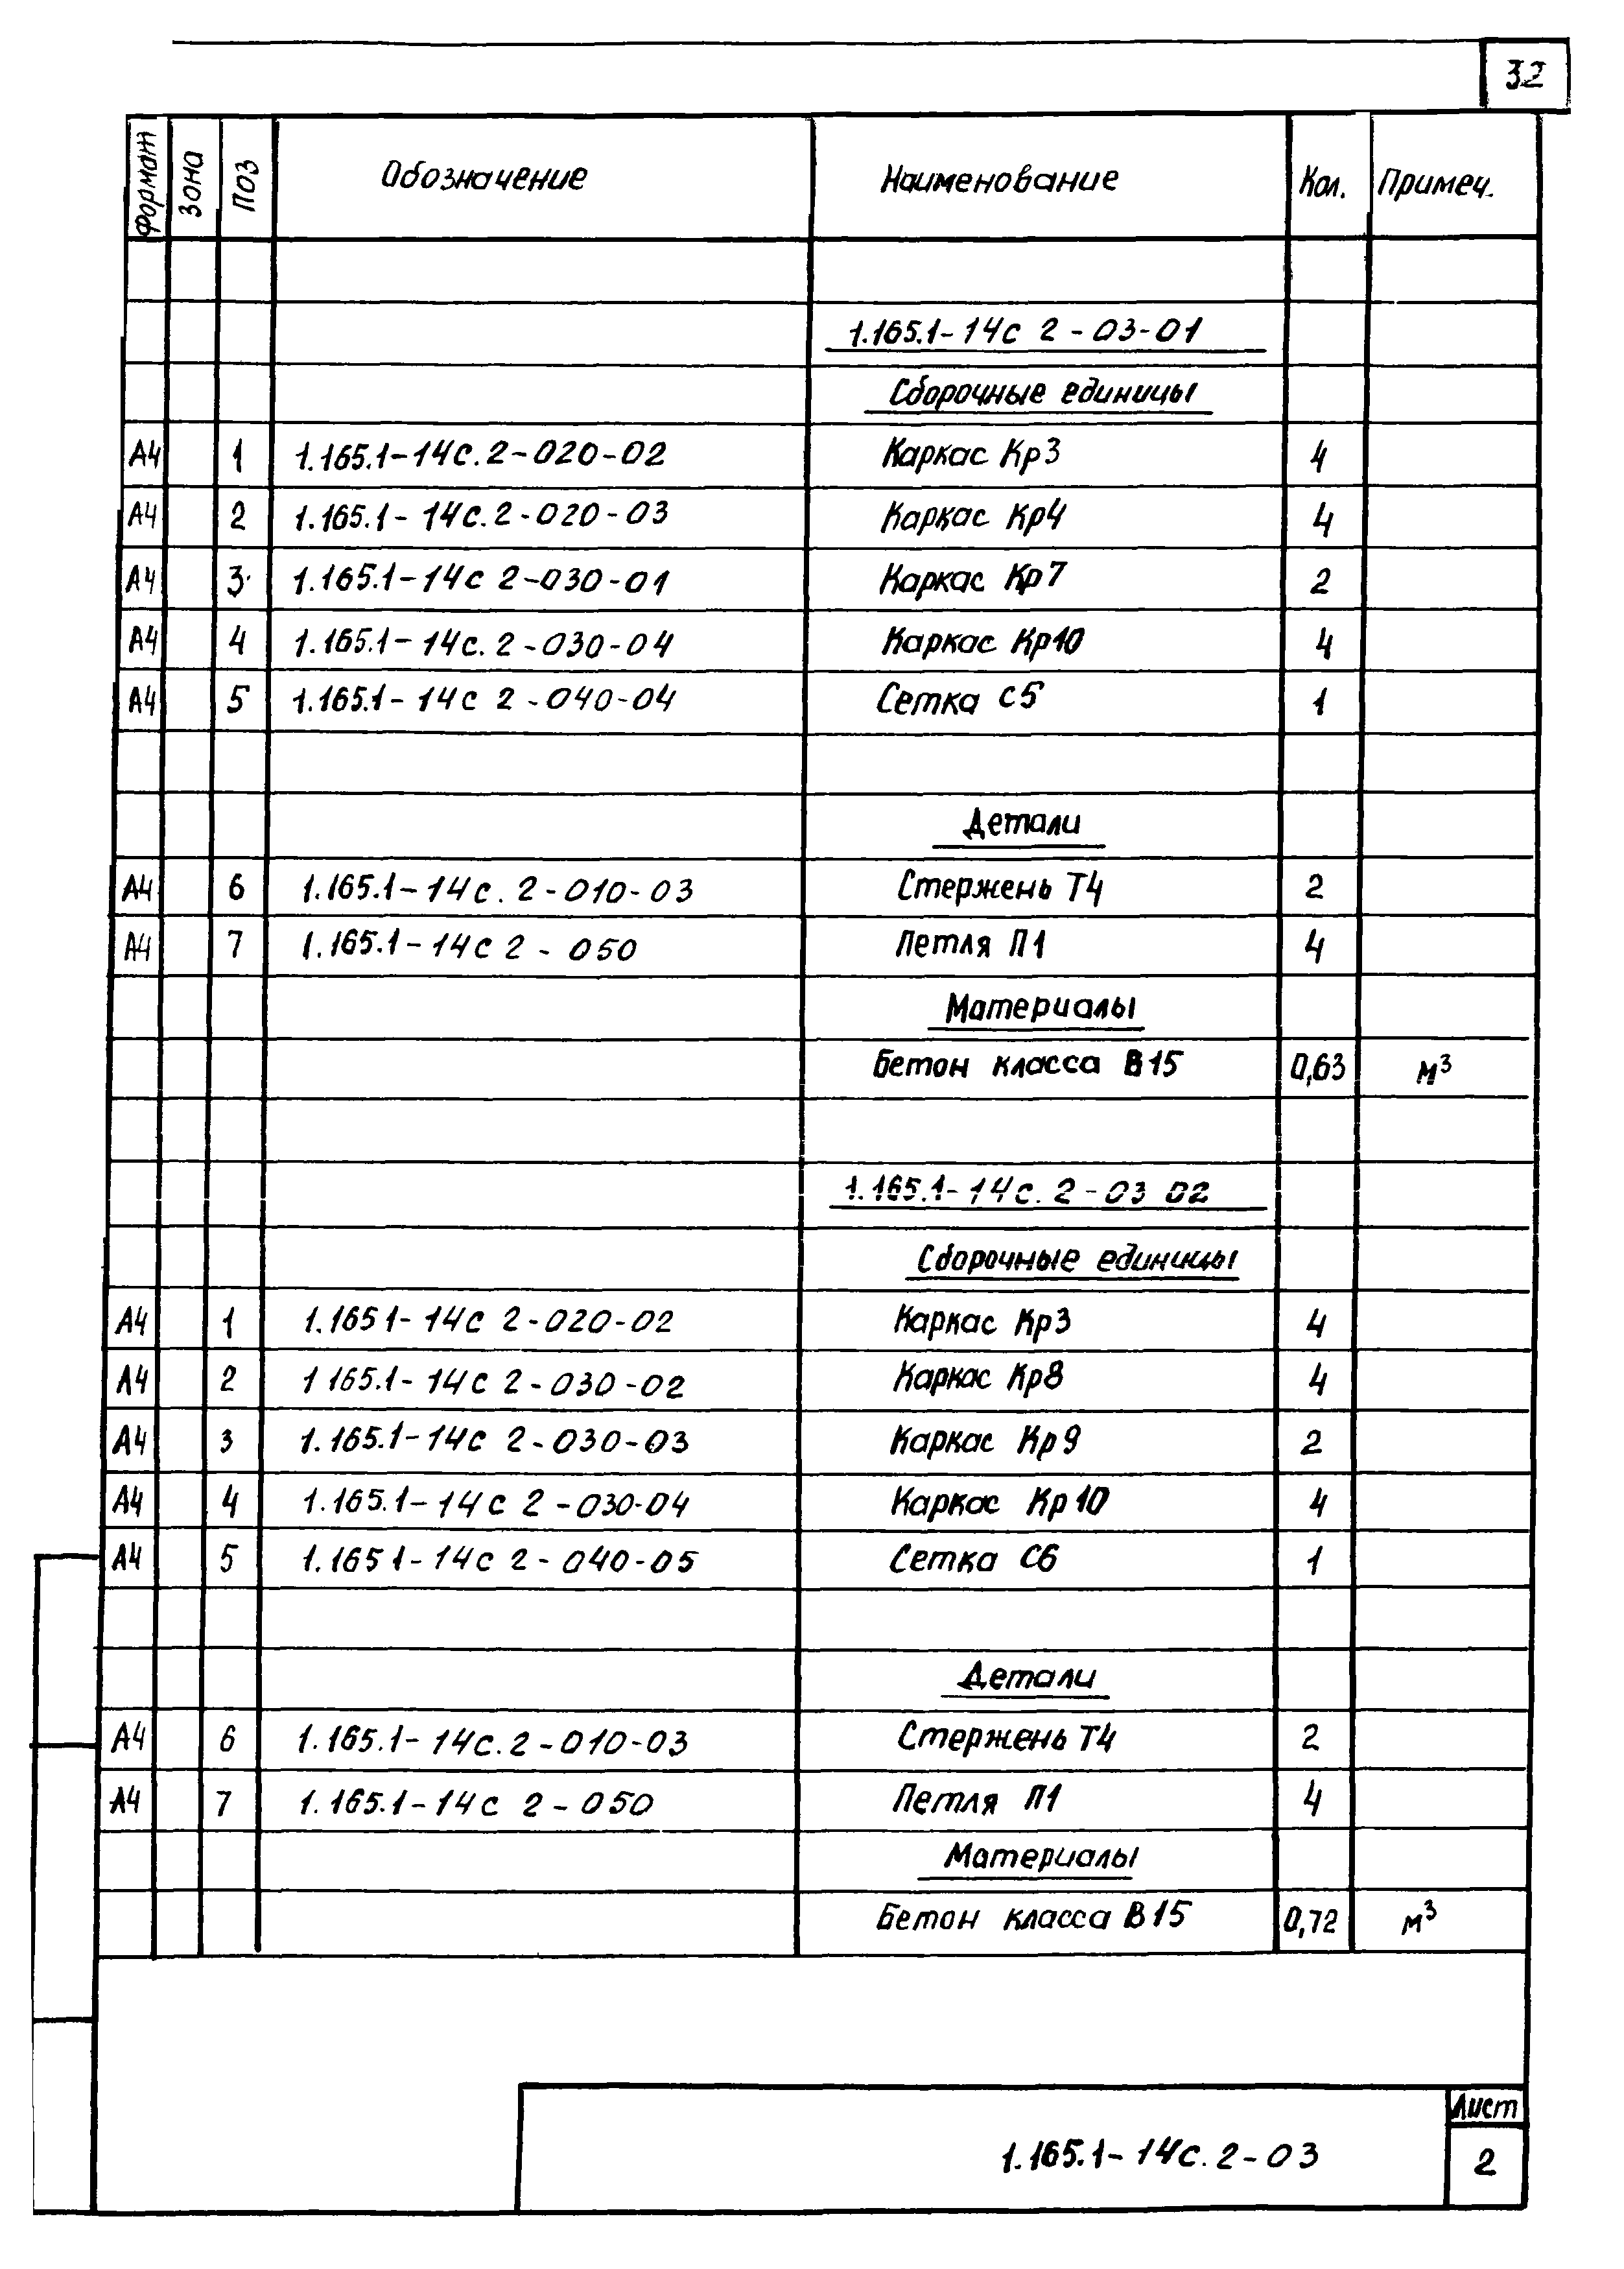 32
Формат Зона Поз Обозначение Наименование Кол. Примеч.
1.165.1-14с 2-03-01
Сборочные единицы
А4 1 1.165.1-14с.2-020-02 Каркас Кр3 4
А4 2 1.165.1-14с.2-020-03 Каркас Кр4 4
А4 3 1.165.1-14с 2-030-01 Каркас Кр7 2
А4 4 1.165.1-14с.2-030-04 Каркас Кр10 4
А4 5 1.165.1-14с 2-040-04 Сетка С5 1
Детали
А4 6 1.165.1-14с.2-010-03 Стержень Т4 2
А4 7 1.165.1-14с 2-050 Петля П1 4
Материалы
Бетон класса В15 0,63 м³
1.165.1-14с.2-03 02
Сборочные единицы
А4 1 1.165 1-14с 2-020-02 Каркас Кр3 4
А4 2 1 165.1-14с 2-030-02 Каркас Кр8 4
А4 3 1.165.1-14с 2-030-03 Каркас Кр9 2
А4 4 1.165.1-14с 2-030-04 Каркас Кр10 4
А4 5 1.165 1-14с 2-040-05 Сетка С6 1
Детали
А4 6 1.165.1-14с.2-010-03 Стержень Т4 2
А4 7 1.165.1-14с 2-050 Петля П1 4
Материалы
Бетон класса В15 0,72 м³
Лист
1.165.1-14с.2-03 2